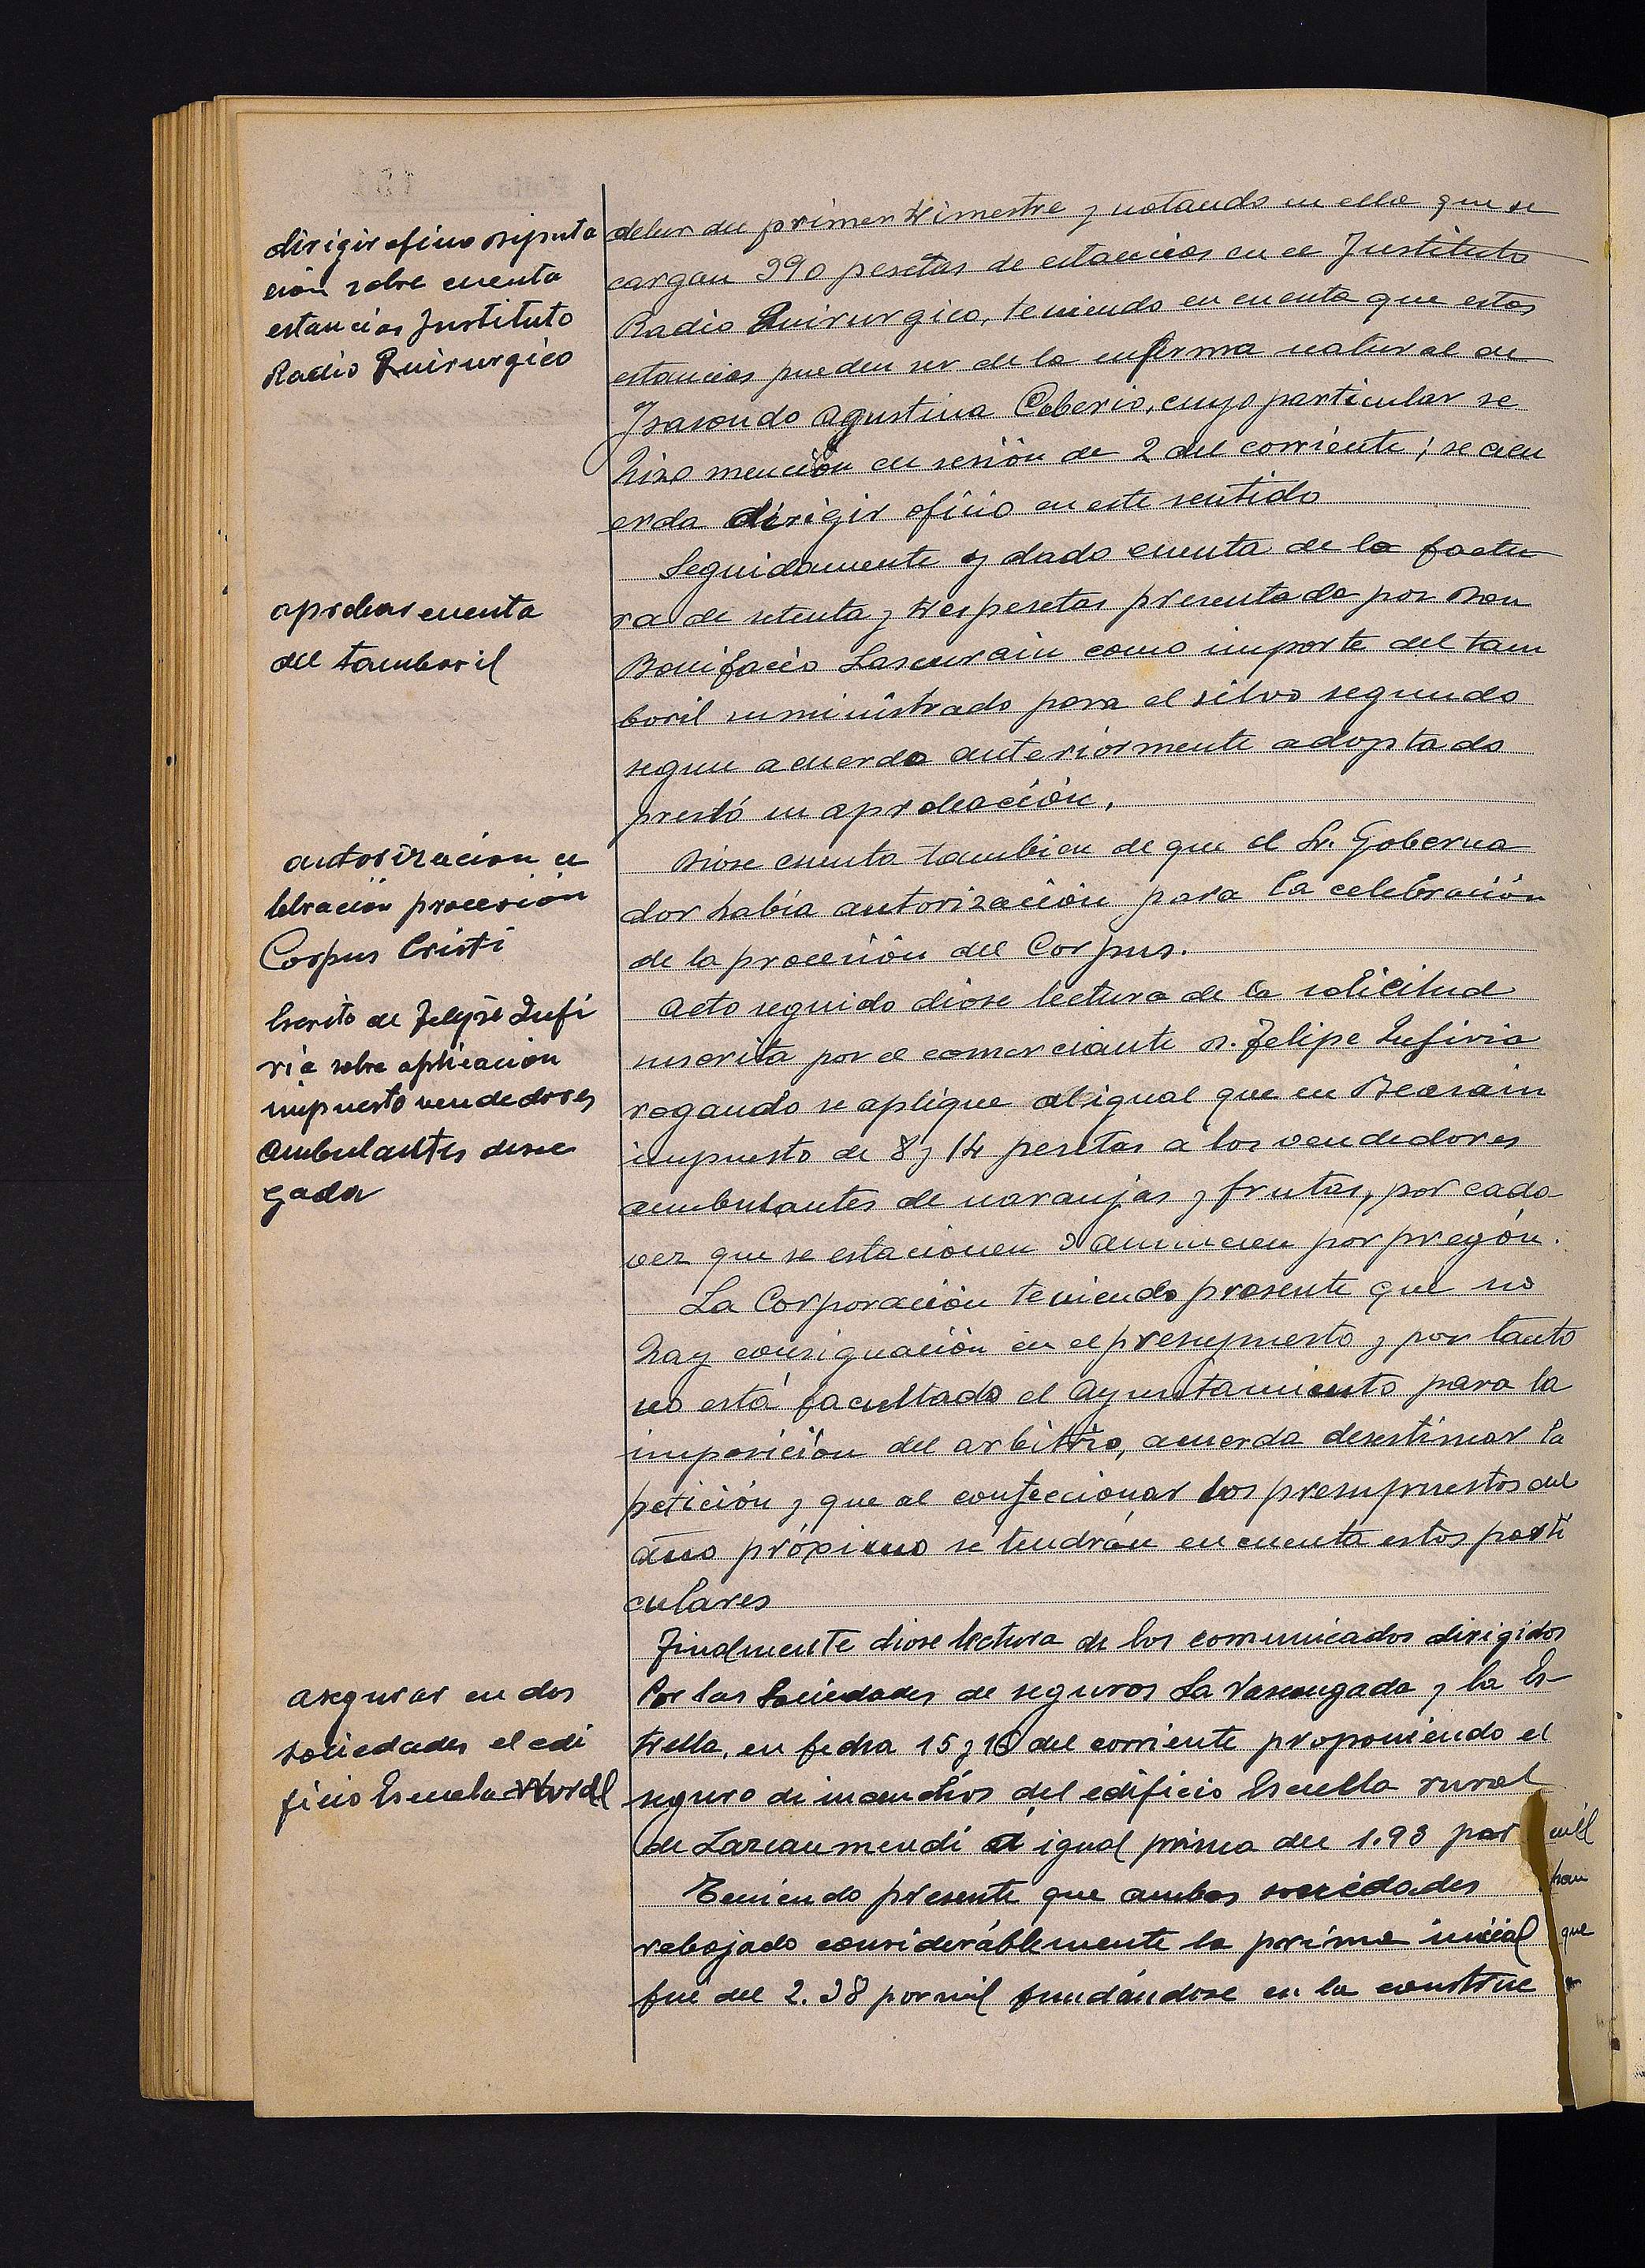 dirigir oficio Diputa
ción sobre cuenta
estancias Instituto
Radio Quirurgico
deber del primer trimestre y notando en ella que se
cargan 390 pesetas de estancias en el Instituto
Radio Quirurgico, teniendo en cuenta que estas
estancias pueden ser de la enferma natural de
Isasondo Agustina Ceberio, cuyo particular se
hizo mención en sesión de 2 del corriente; se acu
erda dirigir oficio en este sentido
aprobar cuenta
del tamboril
Seguidamente y dado cuenta de la factu
ra de setenta y tres pesetas presentada por Don
Bonifacio Lascurain como importe del tam
boril suministrado para el silvo segundo
segun acuerdo anteriormente adoptado
prestó su aprobación.
autorizacion ce
lebración procesión
Corpus Cristi
Diose cuenta tambien de que el Sr. Goberna
dor había autorización para la celebración
de la procesión del Corpus.
Escrito de Felipe Zufi
ria sobre aplicacion
impuesto vendedores
ambulantes dene
gada
Acto seguido diose lectura de la solicitud
suscrita por el comerciante D. Felipe Zufiria
rogando se aplique al igual que en Beasain
impuesto de 8 y 14 pesetas a los vendedores
ambulantes de naranjas y frutas, por cada
vez que se estacionen o anuncien por pregón.
La Corporación teniendo presente que no
hay consignación en el presupuesto y por tanto
no está facultado el Ayuntamiento para la
imposición del arbitrio, acuerda desestimar la
petición y que al confeccionar los presupuestos del
año próximo se tendrán en cuenta estos parti
culares
asegurar en dos
sociedades el edi
ficio Escuela rural
Finalmente diose lectura de los comunicados dirigidos
Por las Sociedades de seguros La Vascongada y la Es-
trella, en fecha 15 y 16 del corriente proponiendo el
seguro de incendios del edificio Escuela rural
de Lazcaumendi a igual prima del 1.93 por mil
Teniendo presente que ambas sociedades han
rebajado considerablemente la prima inicial que
fué del 2.38 por mil fundándose en la construc